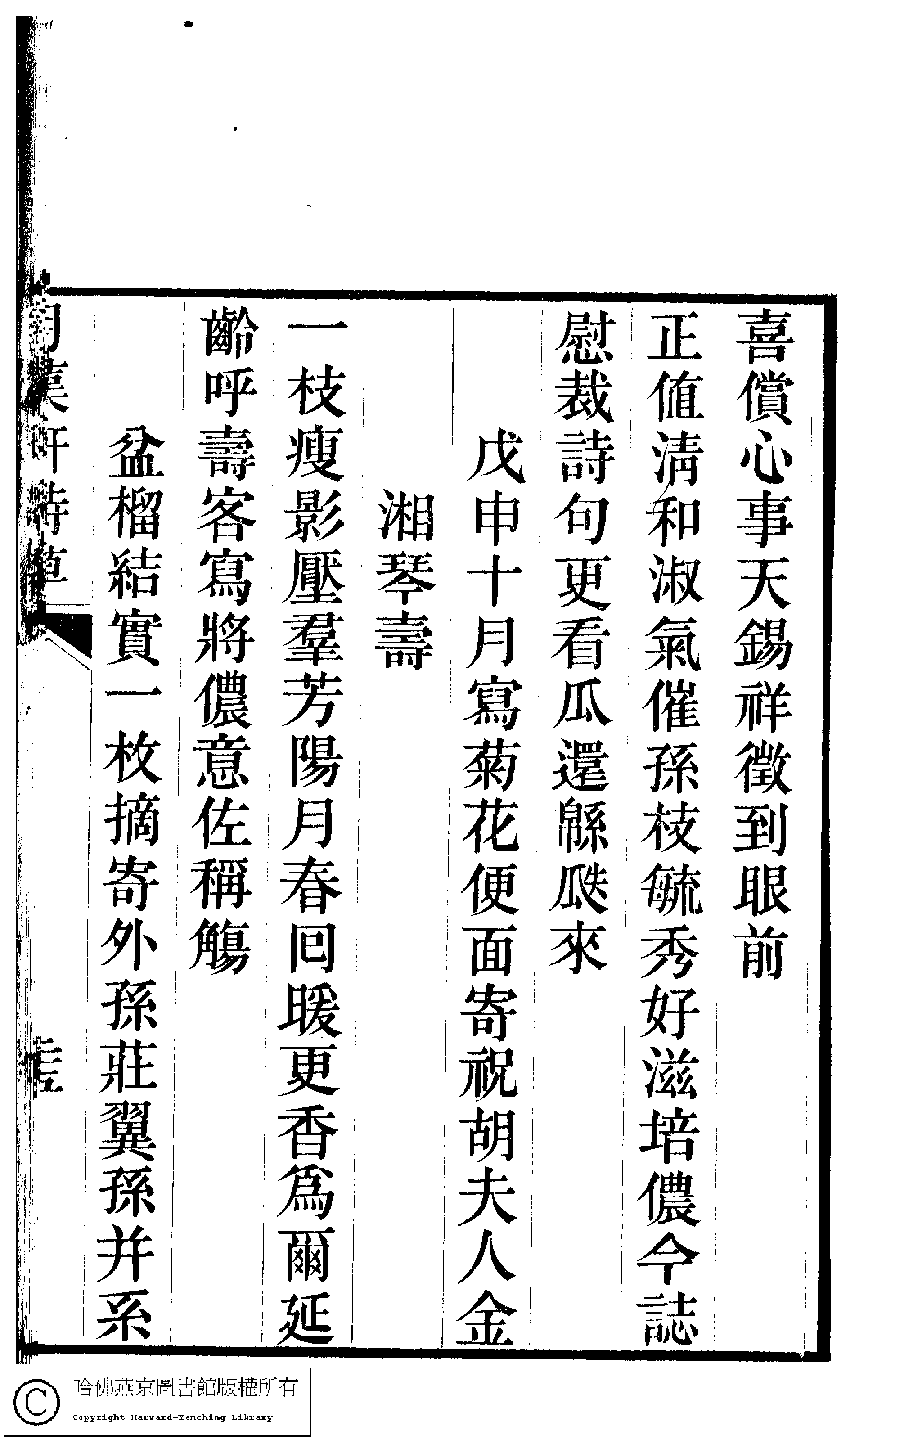 喜償心事天錫祥徵到眼前
正値清和淑氣催孫枝毓秀好滋培儂今誌
慰裁詩句更看瓜還緜瓞來
戊申十月寫菊花便面寄祝胡夫人金
湘琴壽
一枝瘦影壓羣芳陽月春回暖更香爲爾延
齡呼壽客寫將儂意佐稱觴
盆榴結實一枚摘寄外孫莊翼孫并系
軒詩草
哈佛燕京圖書館版權所有
Copyright Harvard-Yenching Library